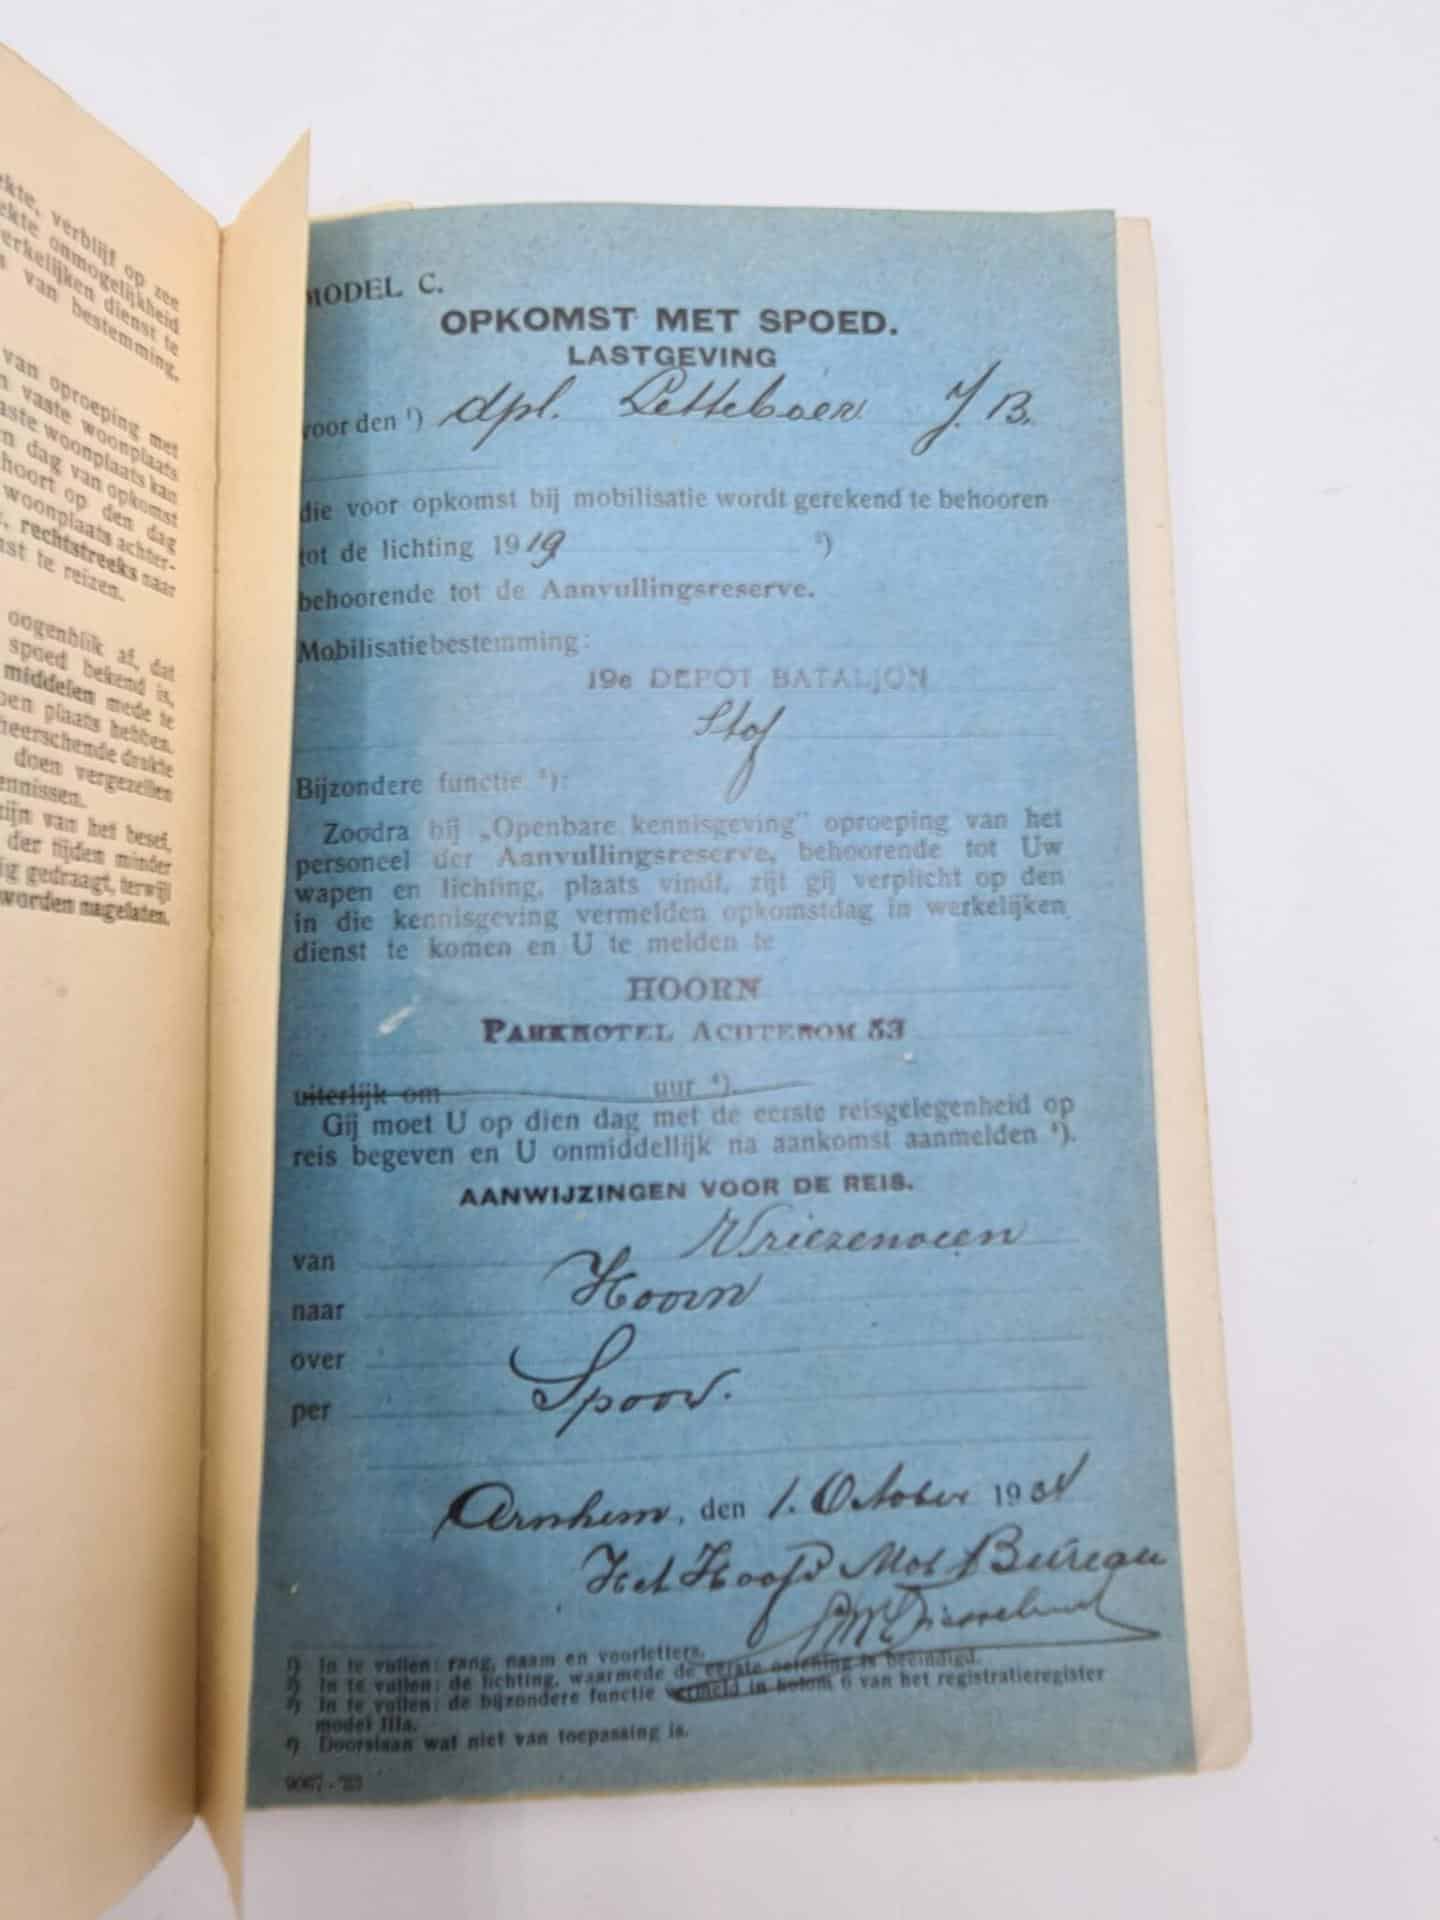 ekte, verblijf op zee
ekte onmogelijkheid
erkelijken dienst te
van bestemming.
van oproeping met
vaste woonplaats
aste woonplaats kan
dag van opkomst
hoort op den dag
woonplaats achter-
rechtstreeks naar
te reizen.
oogenblik af, dat
spoed bekend is,
middelen mede te
plaats hebben,
heerschende drukte
doen vergezellen
ennissen.
zijn van het besef,
der tijden minder
gedraagt, terwijl
worden nagelaten.
MODEL C.
OPKOMST MET SPOED.
LASTGEVING
voor den ¹) dpl. Letteboer J. B.
die voor opkomst bij mobilisatie wordt gerekend te behooren
tot de lichting 1919 ²)
behoorende tot de Aanvullingsreserve.
Mobilisatiebestemming:
19e DEPOT BATALJON
Staf
Bijzondere functie ³):
Zoodra bij „Openbare kennisgeving” oproeping van het
personeel der Aanvullingsreserve, behoorende tot Uw
wapen en lichting, plaats vindt, zijt gij verplicht op den
in die kennisgeving vermelden opkomstdag in werkelijken
dienst te komen en U te melden te
HOORN
PARKHOTEL ACHTEROM 53
uiterlijk om uur ⁴).
Gij moet U op dien dag met de eerste reisgelegenheid op
reis begeven en U onmiddellijk na aankomst aanmelden ⁴).
AANWIJZINGEN VOOR DE REIS.
van Vriezenveen
naar Hoorn
over
per Spoor.
Arnhem, den 1. October 1934
Het Hoofd Mob Bureau
¹) In te vullen: rang, naam en voorletters.
²) In te vullen: de lichting, waarmede de eerste oefening is beëindigd.
³) In te vullen: de bijzondere functie vermeld in kolom 6 van het registratieregister
model IIIa.
⁴) Doorslaan wat niet van toepassing is.
9067 - '33